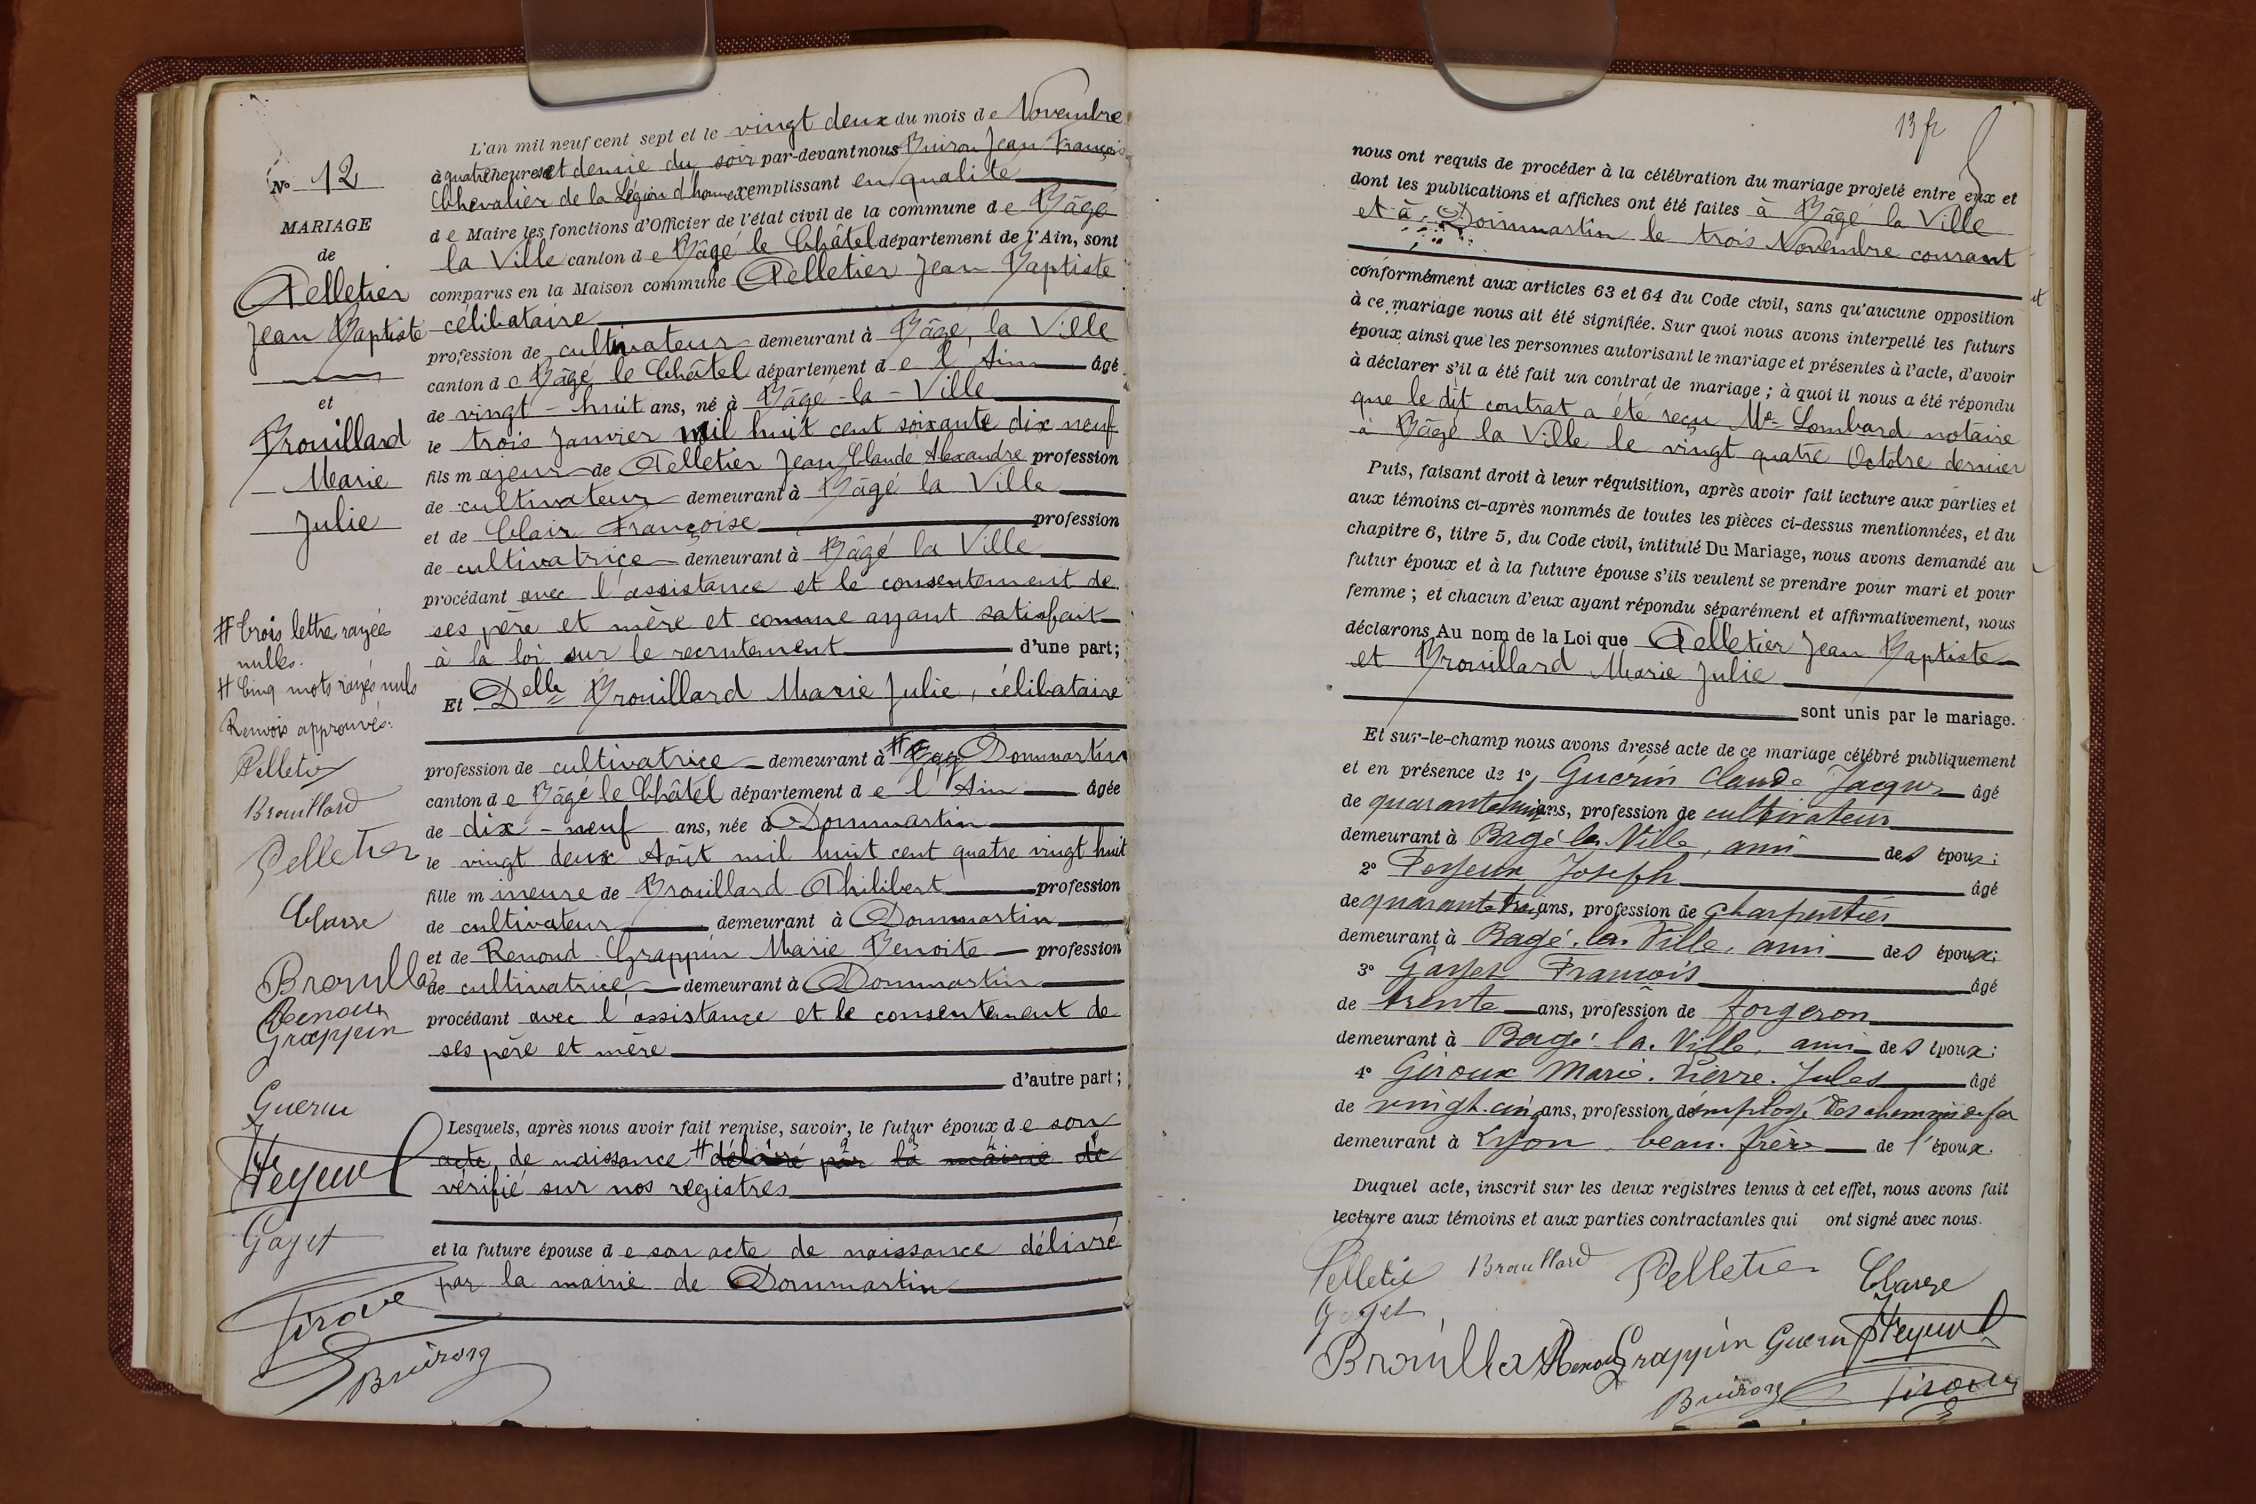 N° 12
MARIAGE
de
Pelletier
Jean Baptiste
et
Brouillard
Marie
Julie
# trois lettre rayée
nulles.
# Cinq mots rayés nuls
Renvois approuvés.
Pelletier
Brouillard
Pelletier
Brouilla
Renoud
Grappin
Guerin
Gayet
Giroux
Buiron
L'an mil neuf cent sept et le vingt deux du mois de Novembre
à quatre heures et demie du soir par-devant nous Buiron Jean François
Chevalier de la Légion d'honneur remplissant en qualité
de Maire les fonctions d'Officier de l'état civil de la commune de Bâgé
la Ville canton de Bâgé le Châtel département de l'Ain, sont
comparus en la Maison commune Pelletier Jean Baptiste
célibataire
profession de cultivateur demeurant à Bâgé la Ville
canton de Bâgé le Châtel département de l'Ain âgé
de vingt-huit ans, né à Bâgé-la-Ville
le trois Janvier mil huit cent soixante dix neuf
fils majeur de Pelletier Jean Claude Alexandre profession
de cultivateur demeurant à Bâgé la Ville
et de Clair Françoise profession
de cultivatrice demeurant à Bâgé la Ville
procédant avec l'assistance et le consentement de
ses père et mère et comme ayant satisfait
à la loi sur le recrutement d'une part;
Et Delle Brouillard Marie Julie, célibataire
profession de cultivatrice demeurant à # Bag Dommartin
canton de Bâgé le Châtel département de l'Ain âgée
de dix-neuf ans, née à Dommartin
le vingt deux Août mil huit cent quatre vingt huit
fille mineure de Brouillard Philibert profession
de cultivateur demeurant à Dommartin
et de Renoud Grappin Marie Benoite profession
de cultivatrice demeurant à Dommartin
procédant avec l'assistance et le consentement de
ses père et mère
d'autre part;
Lesquels, après nous avoir fait remise, savoir, le futur époux de son
acte de naissance # délivré par la mairie de
vérifié sur nos registres
et la future épouse de son acte de naissance délivré
par la mairie de Dommartin
13 fr
nous ont requis de procéder à la célébration du mariage projeté entre eux et
dont les publications et affiches ont été faites à Bâgé la Ville
et à Dommartin le trois Novembre courant
conformément aux articles 63 et 64 du Code civil, sans qu'aucune opposition
à ce mariage nous ait été signifiée. Sur quoi nous avons interpellé les futurs
époux ainsi que les personnes autorisant le mariage et présentes à l'acte, d'avoir
à déclarer s'il a été fait un contrat de mariage; à quoi il nous a été répondu
que le dit contrat a été reçu Me Lombard notaire
à Bâgé la Ville le vingt quatre Octobre dernier
Puis, faisant droit à leur réquisition, après avoir fait lecture aux parties et
aux témoins ci-après nommés de toutes les pièces ci-dessus mentionnées, et du
chapitre 6, titre 5, du Code civil, intitulé Du Mariage, nous avons demandé au
futur époux et à la future épouse s'ils veulent se prendre pour mari et pour
femme; et chacun d'eux ayant répondu séparément et affirmativement, nous
déclarons Au nom de la Loi que Pelletier Jean Baptiste
et Brouillard Marie Julie
sont unis par le mariage.
Et sur-le-champ nous avons dressé acte de ce mariage célébré publiquement
et en présence de 1° Guérin Claude Jacques âgé
de quarante huit ans, profession de cultivateur
demeurant à Bagé la Ville, ami des époux;
2° Joseph âgé
de quarante ans, profession de charpentier
demeurant à Bagé la Ville, ami des époux;
3° Gayet François âgé
de trente ans, profession de forgeron
demeurant à Bagé la Ville, ami des époux;
4° Giroux Marie Pierre Jules âgé
de vingt cinq ans, profession de employé des chemins de fer
demeurant à Lyon beau-frère de l'époux.
Duquel acte, inscrit sur les deux registres tenus à cet effet, nous avons fait
lecture aux témoins et aux parties contractantes qui ont signé avec nous.
Pelletier Brouillard Pelletier
Gayet
Brouillard Renoud Grappin Guerin
Buiron Giroux